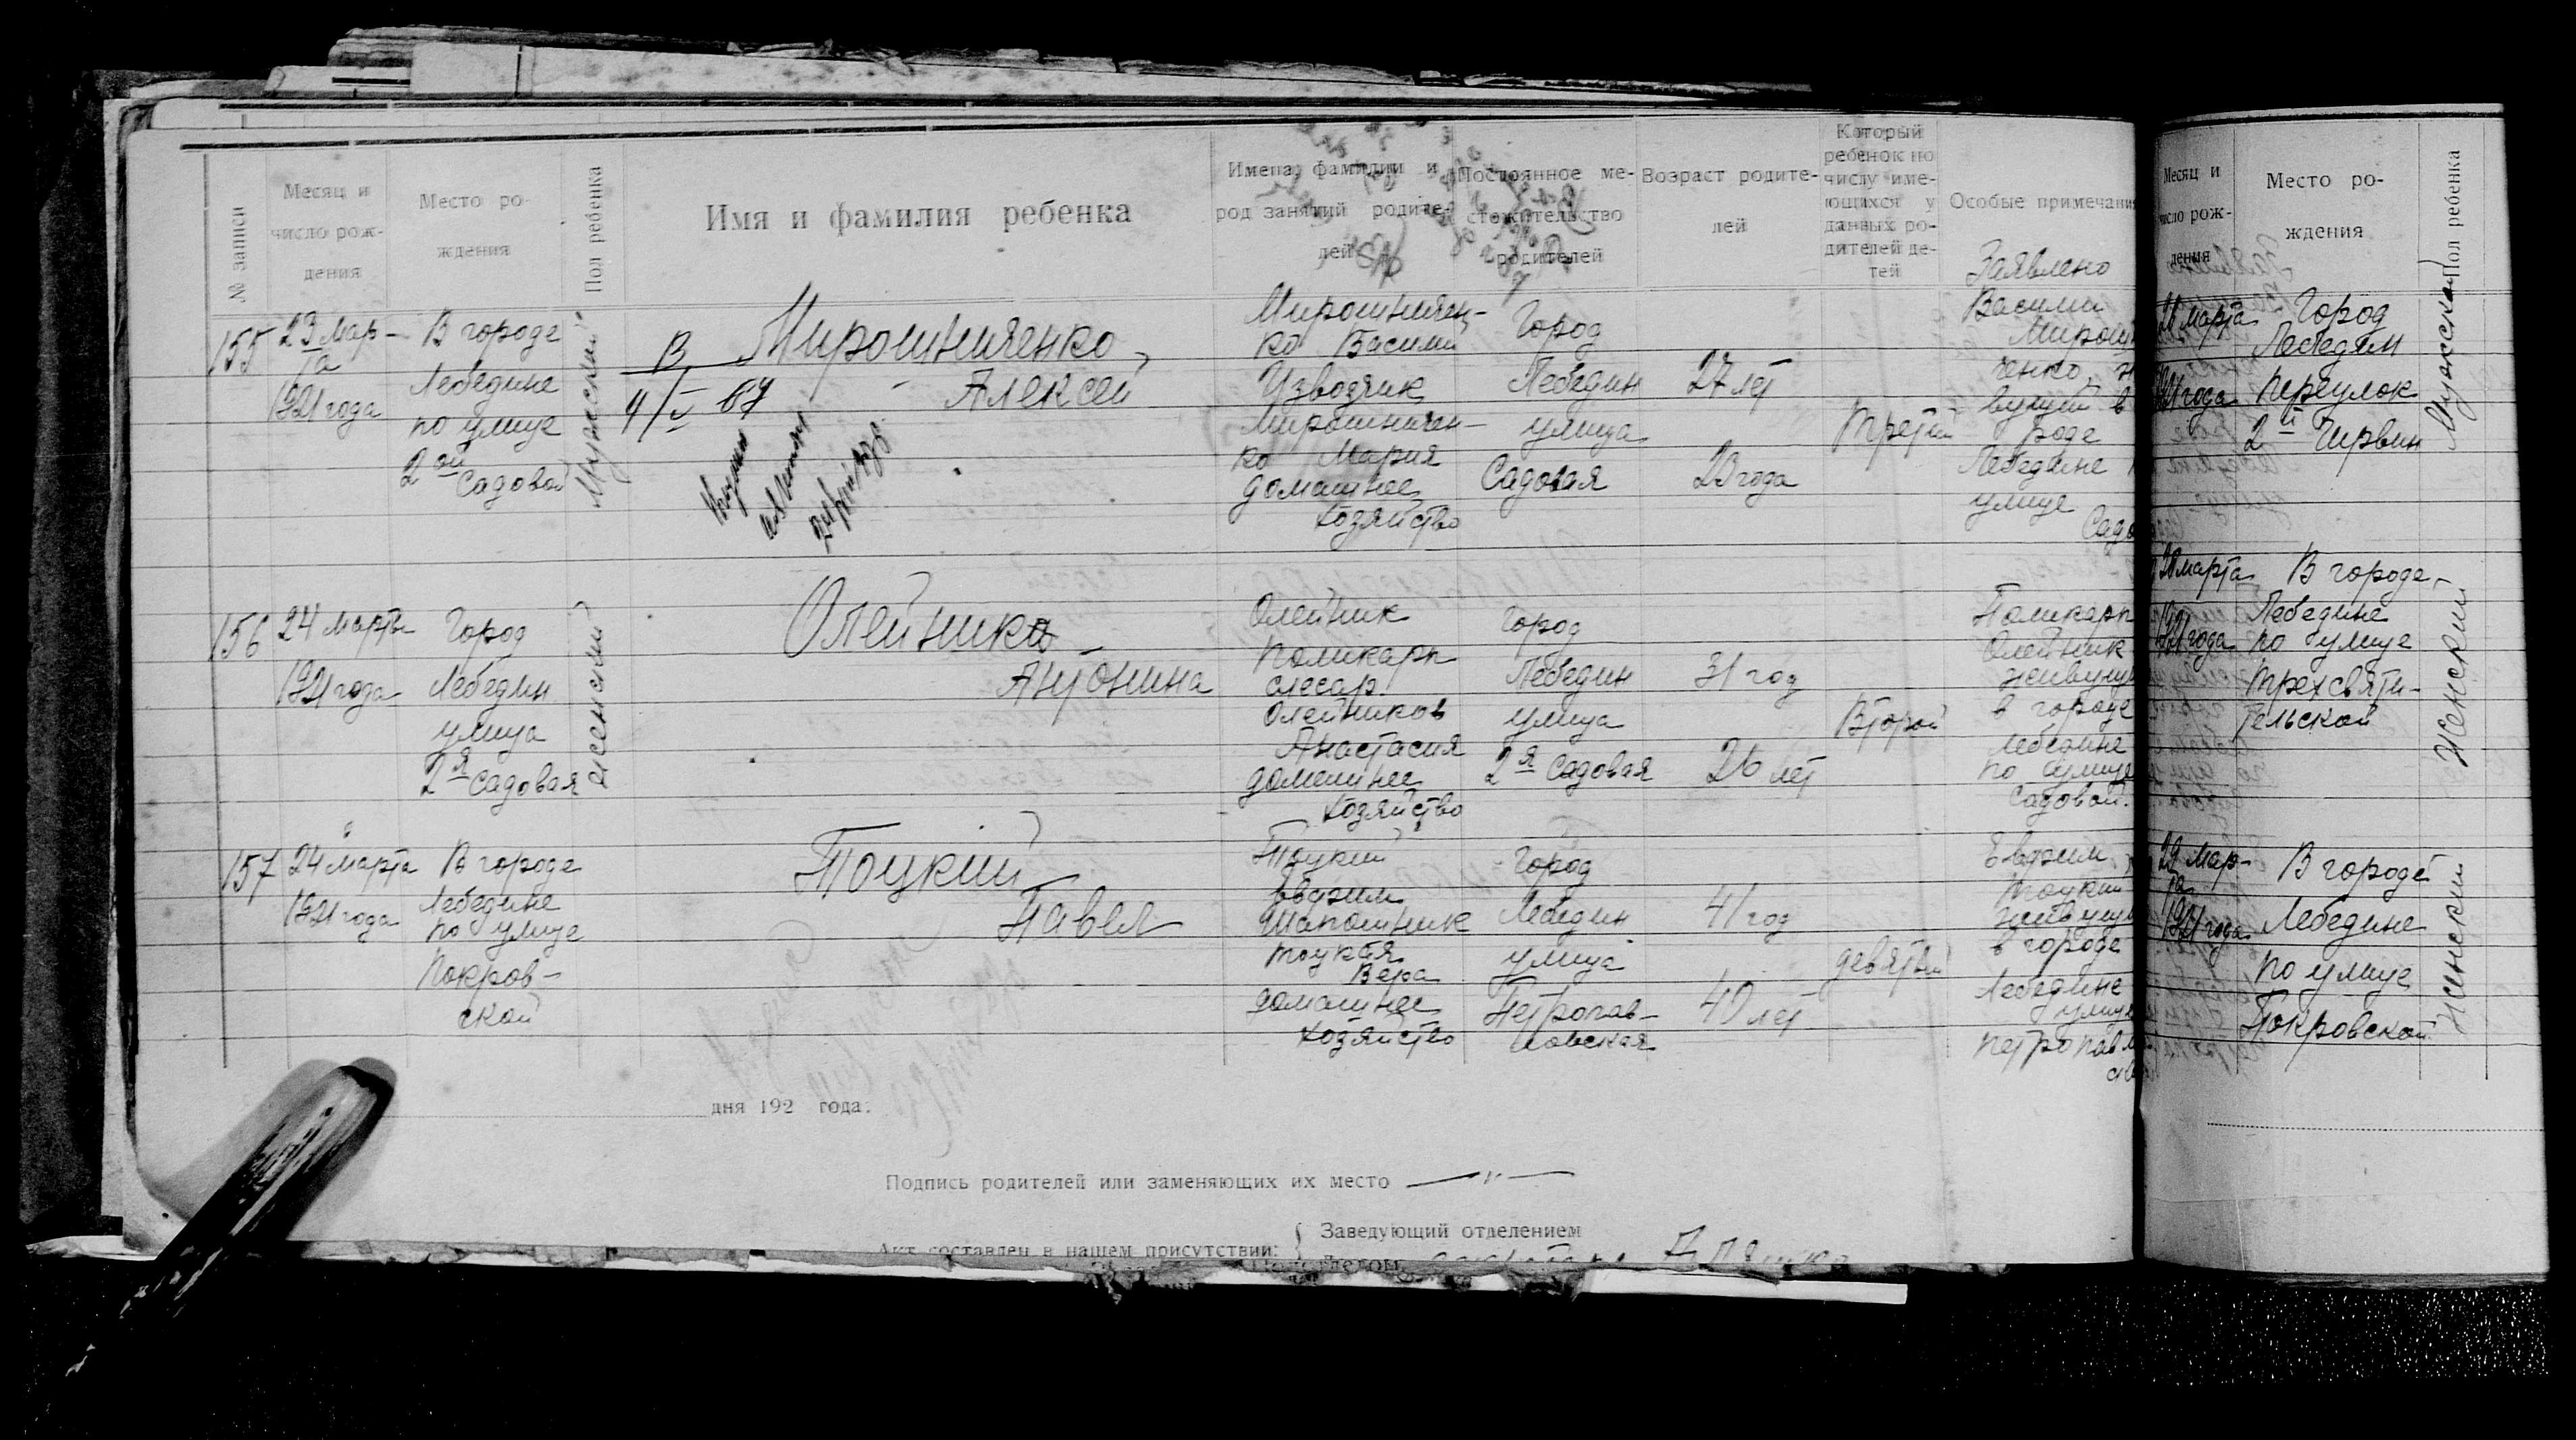 № записи
Месяц и
число рож-
дения
Место ро-
ждения
Пол ребенка
Имя и фамилия ребенка
Имена, фамилии и
род занятий родите-
лей
Постоянное ме-
стожительство
родителей
Возраст родите-
лей
Который
ребенок по
числу име-
ющихся у
данных ро-
дителей де-
тей
Особые примечания
155
23 мар-
та
1921 года
В городе
Лебедине
по улице
2ой Садовой
Мужеский
Мирошниченко
Алексей
В
4/V 67
Мирошничен-
ко Василий
Извозчик
Мирошничен-
ко Мария
домашнее
хозяйство
Город
Лебедин
улица
Садовая
27 лет
23 года
Третий
Заявлено
Василий
Мирош
ченко
роде
Лебедине
улице
Садо
156
24 марта
1921 года
Город
Лебедин
улица
2я Садовая
женский
Олейника
Антонина
Олейник
Поликарп
слесар
Олейников
Анастасия
домашнее
хозяйство
город
Лебедин
улица
2я Садовая
31 год
26 лет
Второй
Поликарп
Олейник
живущ
в городе
Лебедине
по улице
Садовой.
157
24 марта
1921 года
В городе
Лебедине
по улице
Покров-
ской
Тоцкий
Павел
Тоцкий
Евдоким
Шапошник
Тоцкая
Вера
домашнее
хозяйство
город
Лебедин
улица
Петропав-
ловская
41 год
40 лет
девятый
Евдоким
Тоцкий
живущ
в городе
Лебедине
улице
Петропавл
дня 192 года.
Подпись родителей или заменяющих их место
Акт составлен в нашем присутствии:
Заведующий отделением
Месяц и
число рож-
дения
Место ро-
ждения
Пол ребенка
марта
1921 года
Город
Лебедин
переулок
2й
Мужеский
28 марта
1921 года
В городе
Лебедине
по улице
Трехсвяти-
тельской
Женский
29 мар-
та
1921 года
В городе
Лебедине
по улице
Покровской
Женский